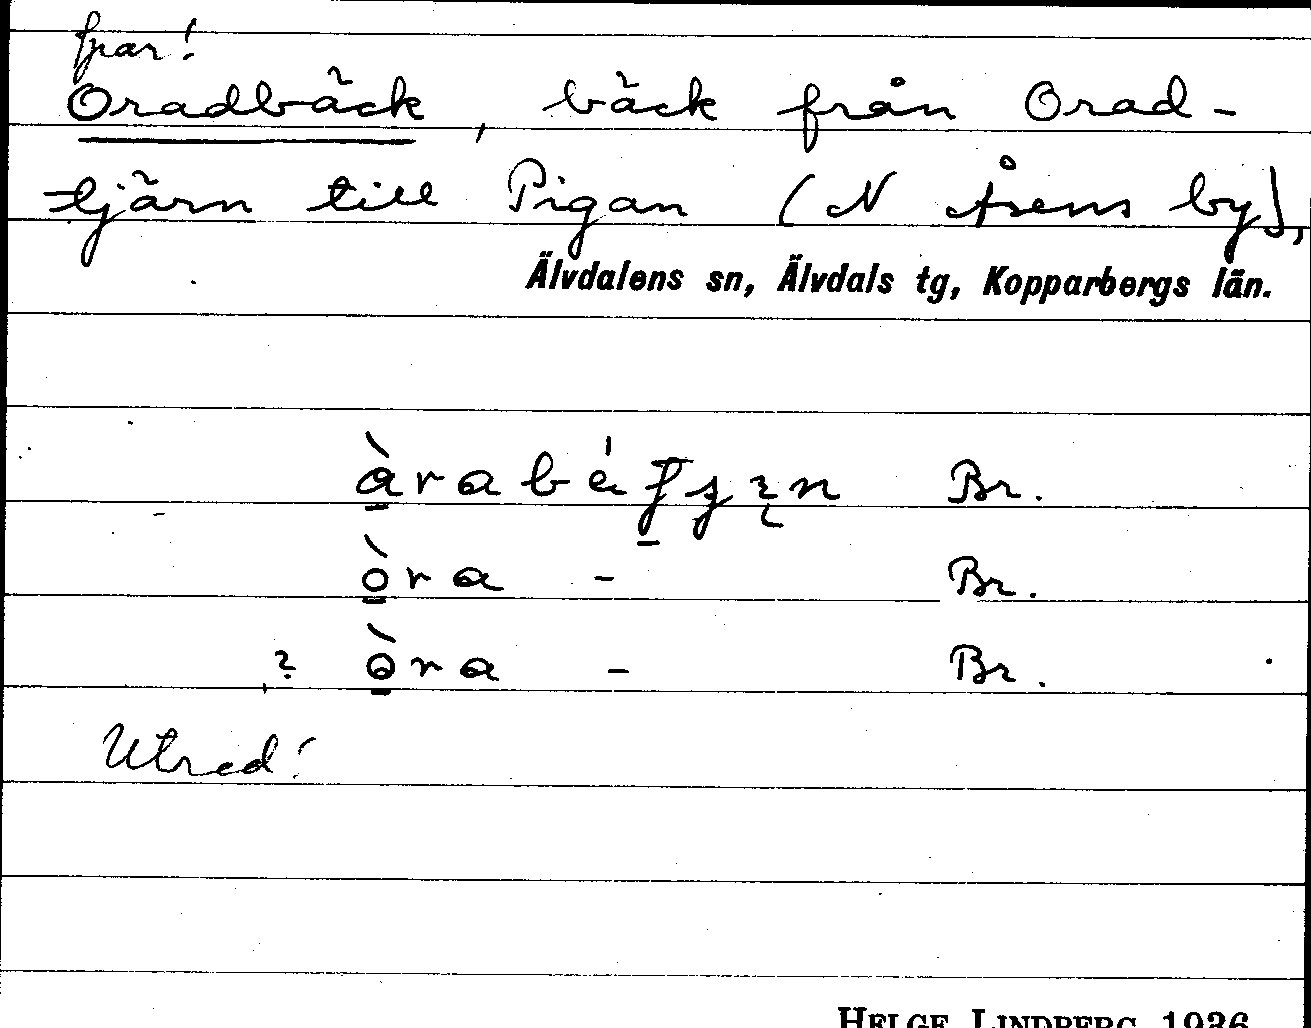 Oradbäck, bäck från Orad-
tjärn till Pigan (N Åsens by),
Älvdalens sn, Älvdals tg, Kopparbergs län.
Br.
òra - Br.
? òra - Br.
Utred!
HELGE LINDBERG 1936